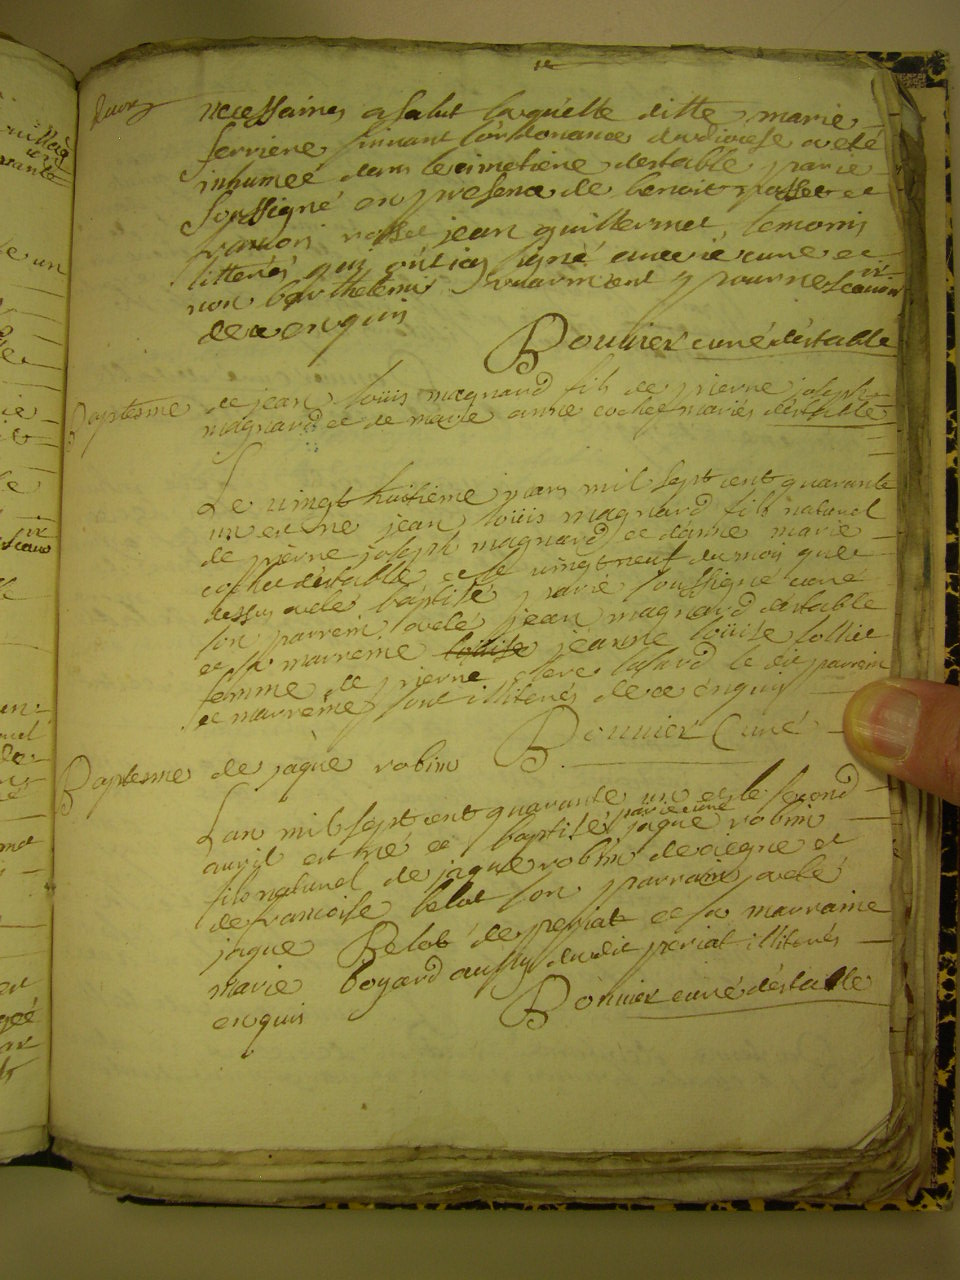 necessaires a salut laquelle ditte marie
ferriere suivant lordonance du diocese a eté
inhumeé dans le cimetiere destable par je
soussigné en presence de benoit et
francois jean guillermet, temoins
litterés qui ont icy signé avec je curé et
non barthelemi pour ne scavoir
de ce enquis
Bouvier curé d'estable
Baptesme de jean loüis magnard fils de pierre joseph
magnard et de marie anne cochet mariés destable
Le vingt huitième mars mil sept cent quarante
un est né jean loüis magnard fils naturel
de pierre joseph magnard et danne marie
cochet d'estable et le vingt neuf du mois que
dessus a eté baptisé par je soussigné curé
son parrein a eté jean magnard destable
et sa marreine jeanne loüise lollier
femme de pierre le dit parrein
et marreine sont illiterés de ce enquis
Bouvier Curé
Baptesme de jaque robin
Lan mil sept cent quarante un et le second
avril est né et baptisé par je curé jaque robin
fils naturel de jaque robin de et
de francoise belot son parrain a eté
jaque Belot de periat et sa marraine
marie bogard aussy dudit periat illiterés
enquis
Bouvier curé d'estable